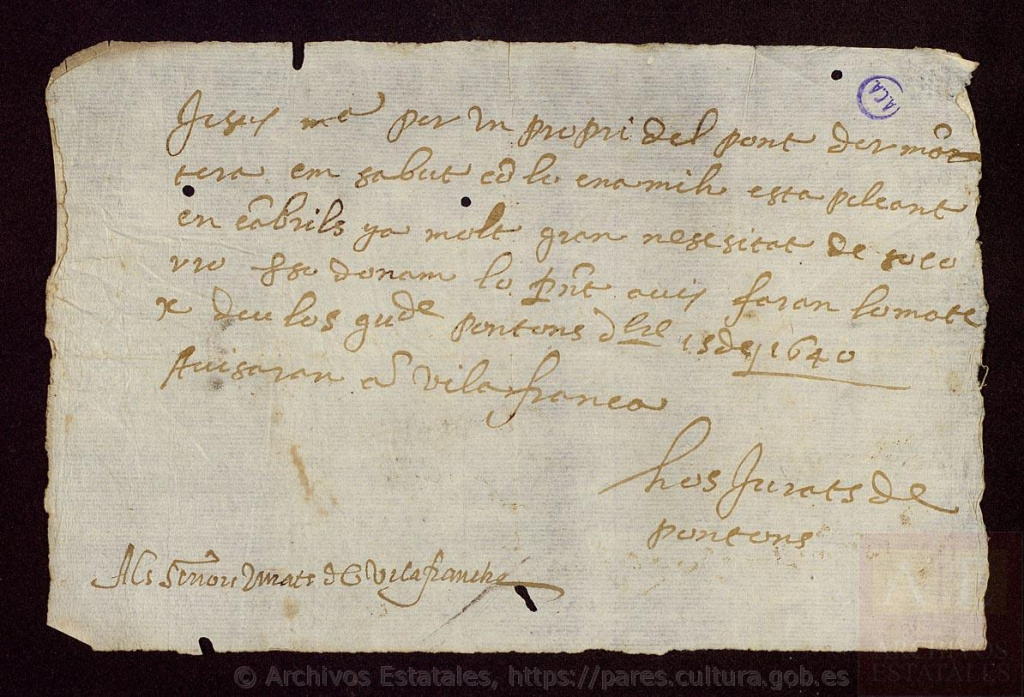 Jesus mª per un propri del pont der mõn
tera em sabut cõ lo enamih esta peleant
en cãbrils ya molt gran nesesitat de soco
rro sso donam lo pñt avis faran lo mate
x deu los gude pontons dbre 15 de 1640
Avisaran a vilafranca
Los Jurats de
pontons
Als señors Jurats de Vilafrancha
ACA
© Archivos Estatales, https://pares.cultura.gob.es
ARCHIVOS
ESTATALES